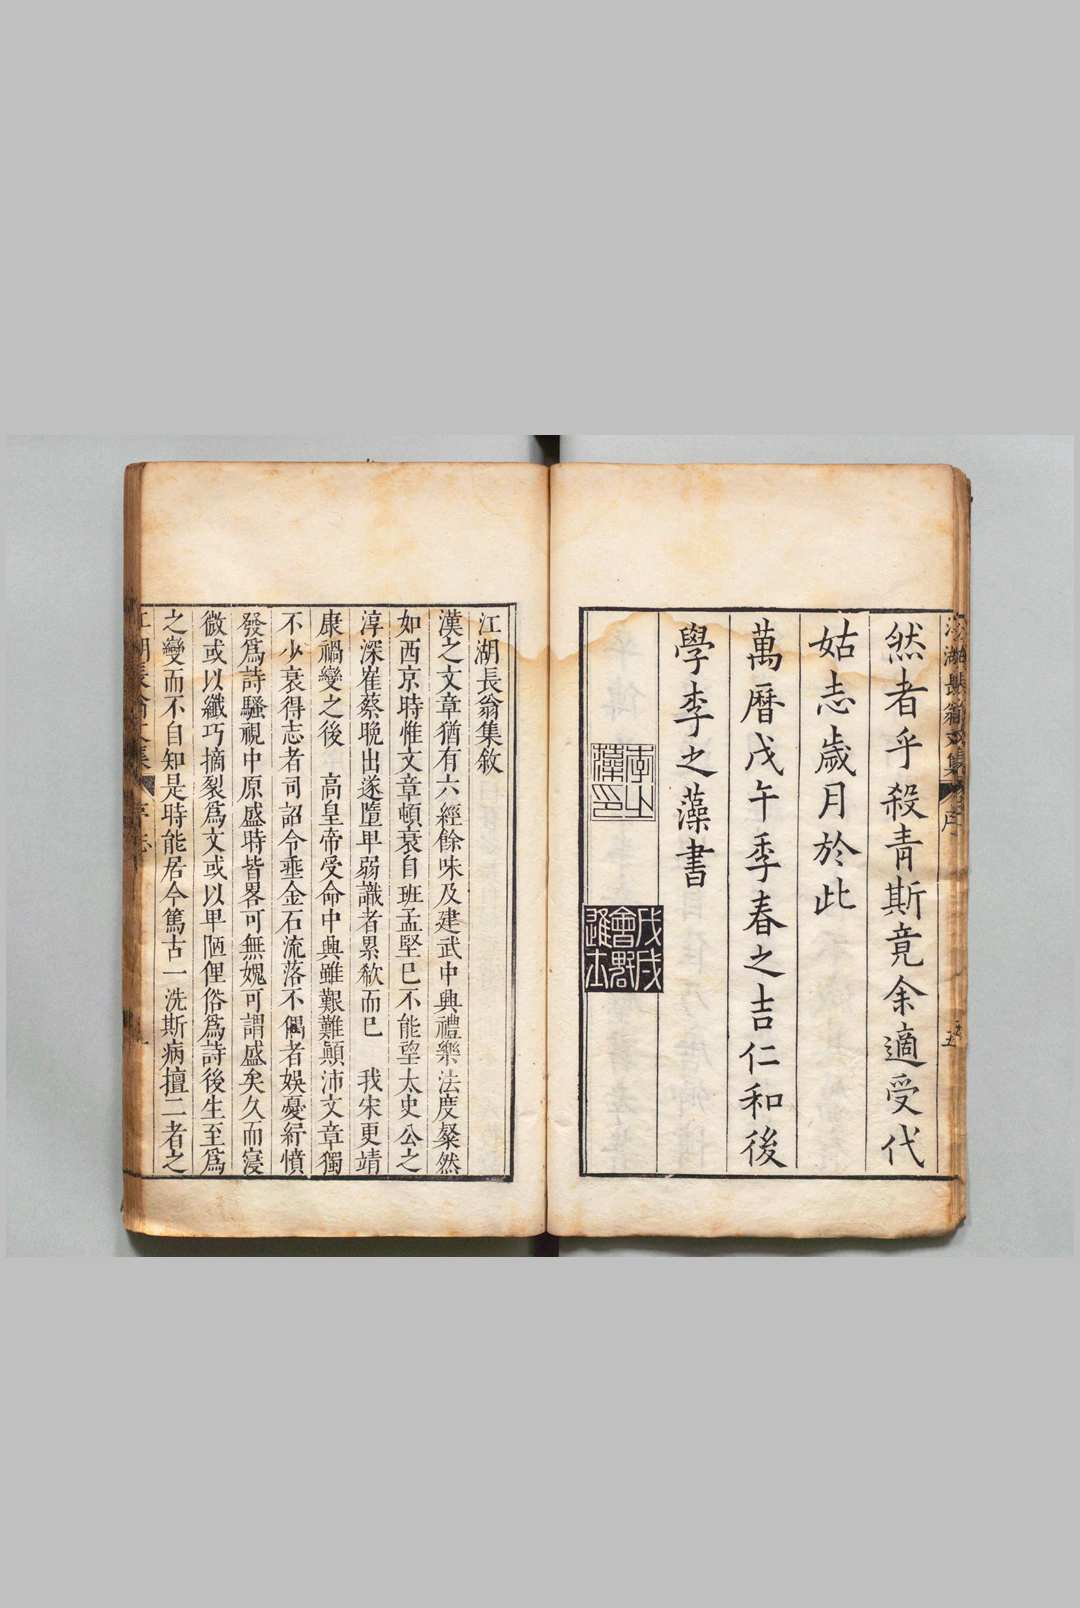 然者乎殺青斯竟余適受代
姑志歲月於此
萬曆戊午季春之吉仁和後
學李之藻書
李之藻印
戊戌會魁進士
江湖長翁集敘
漢之文章猶有六經餘味及建武中興禮樂法度粲然
如西京時惟文章頓衰自班孟堅已不能望太史公之
淳深崔蔡晚出遂墮卑弱識者累欷而已　我宋更靖
康禍變之後　高皇帝受命中興雖艱難顛沛文章獨
不少衰得志者司詔令垂金石流落不偶者娛憂紓憤
發爲詩騷視中原盛時皆畧可無媿可謂盛矣久而寖
微或以纖巧摘裂爲文或以卑陋俚俗爲詩後生至爲
之變而不自知是時能居今篤古一洗斯病擅二者之